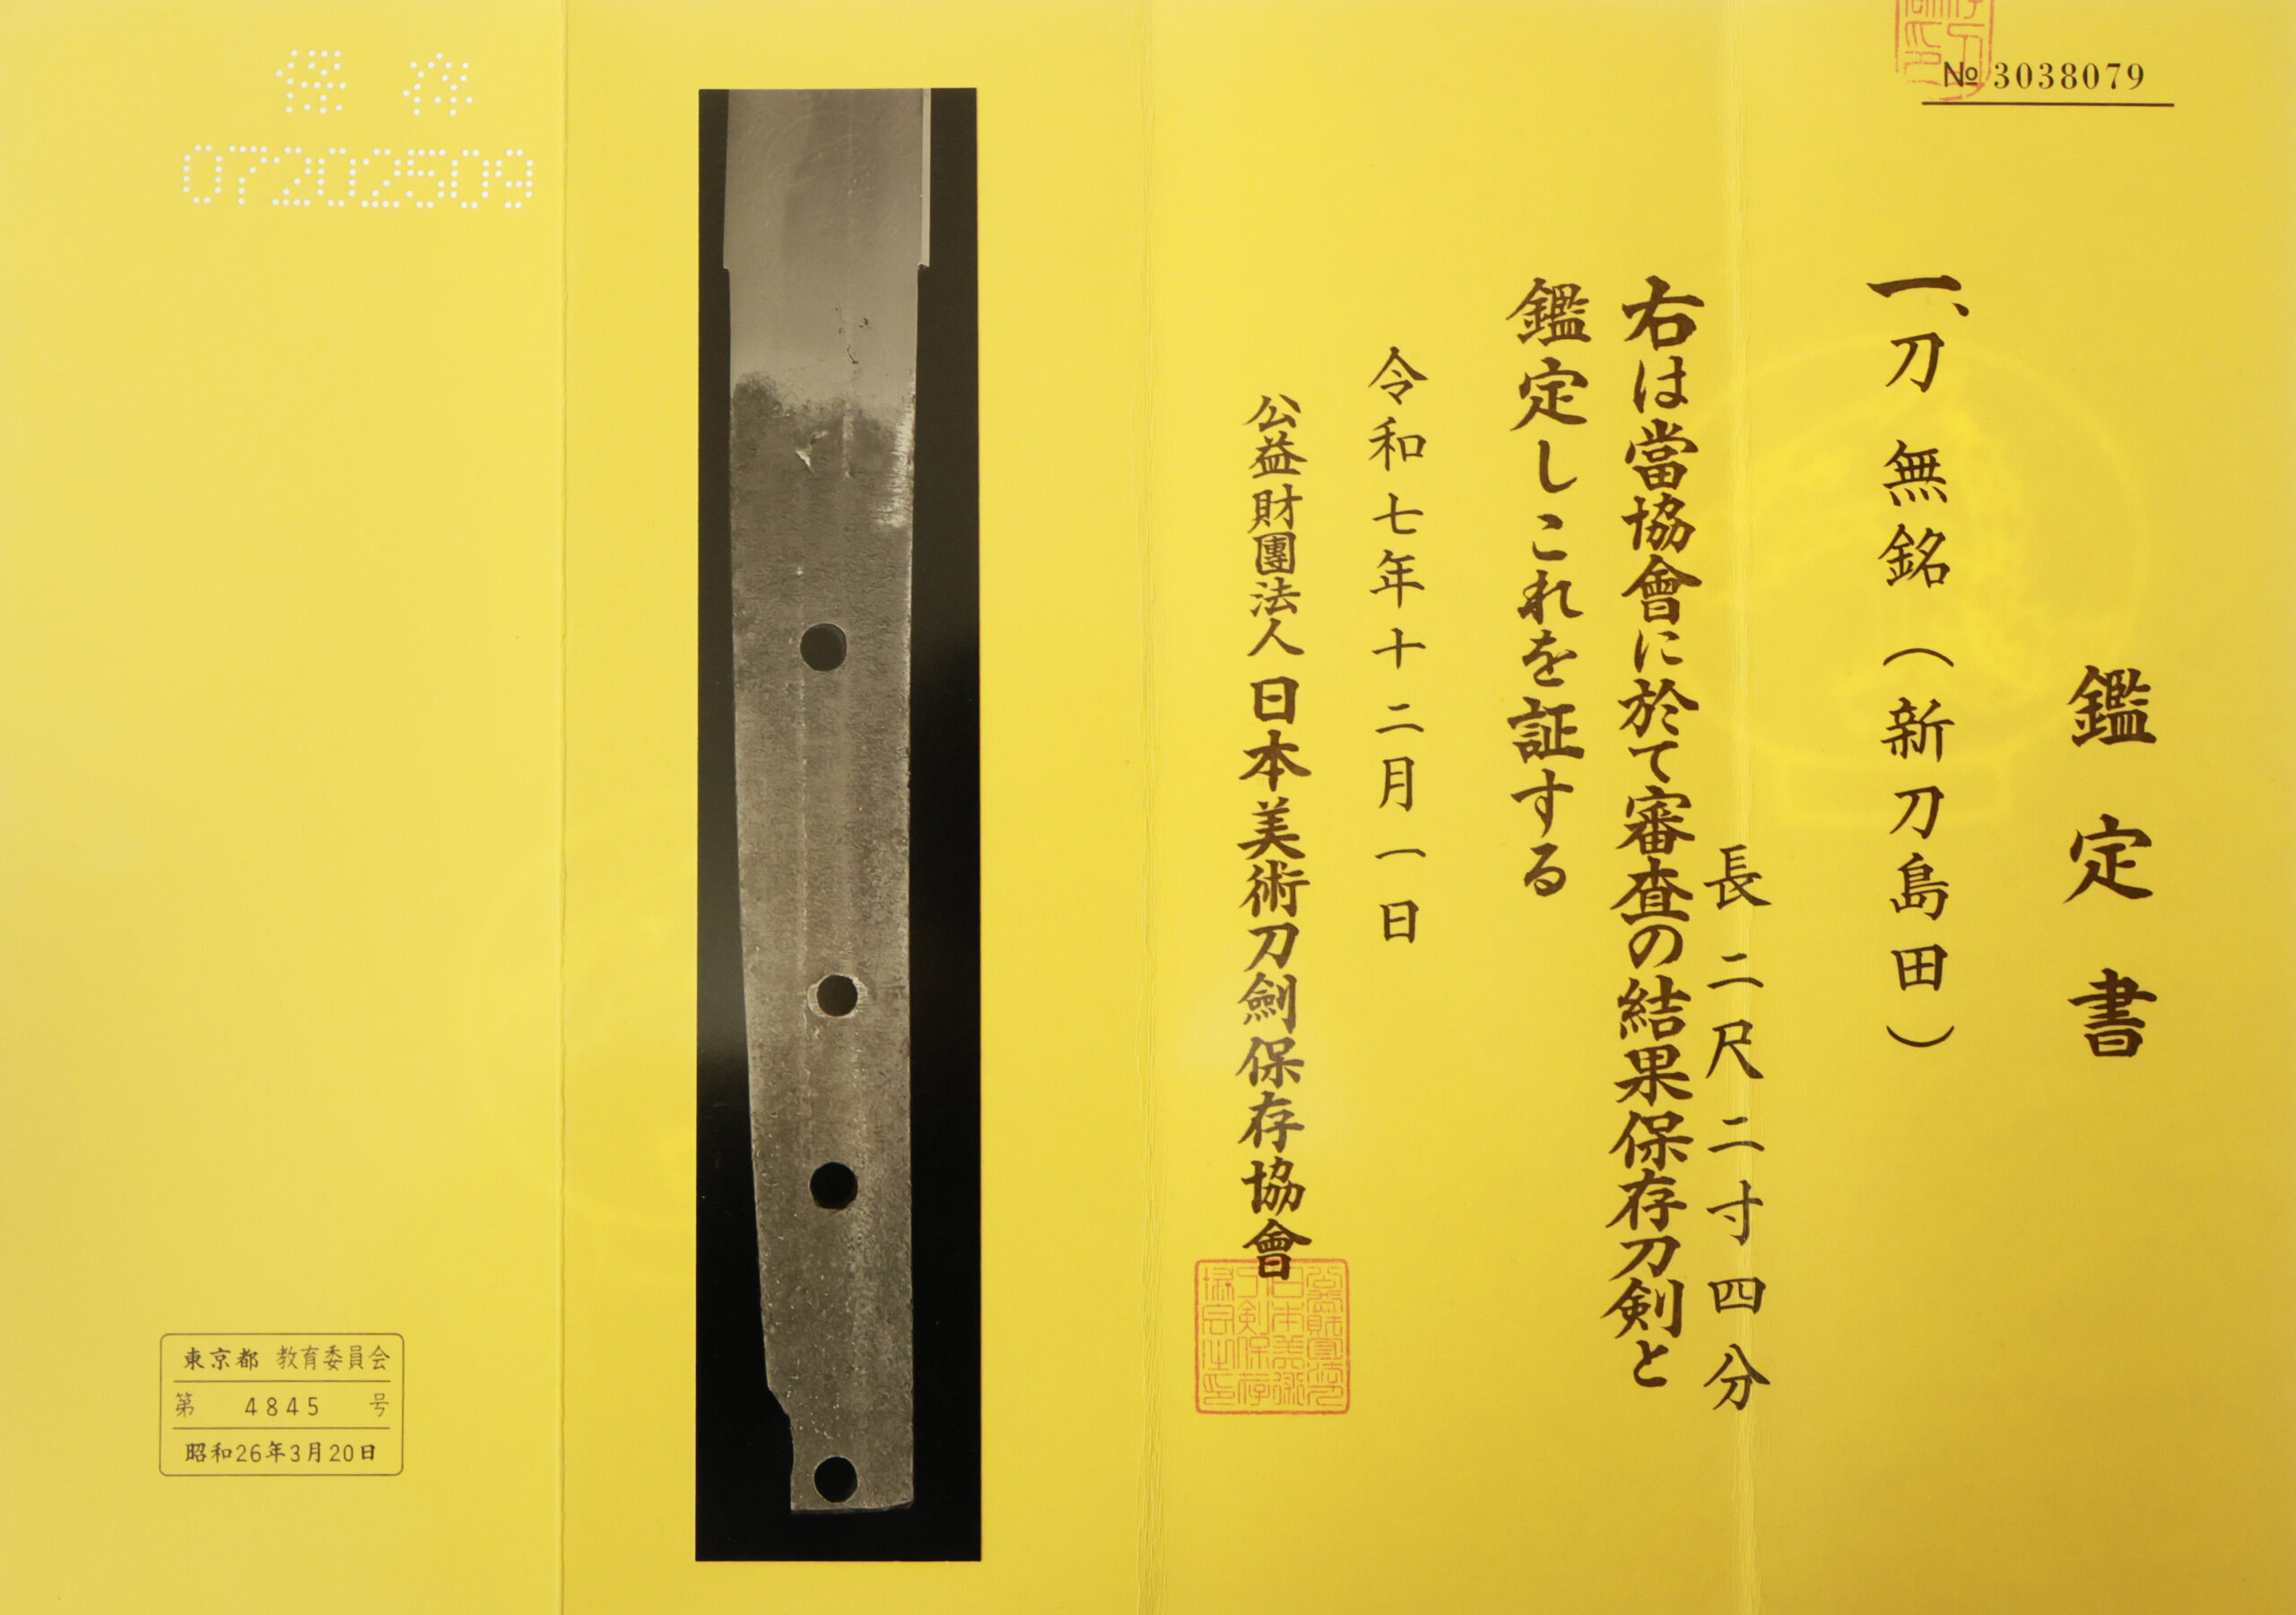 №3038079
鑑定書
一、刀 無銘（新刀島田）
長二尺二寸四分
右は當協會に於て審査の結果保存刀剣と
鑑定しこれを証する
令和七年十二月一日
公益財團法人日本美術刀劍保存協會
保存
07202509
東京都 教育委員会
第 4845 号
昭和26年3月20日